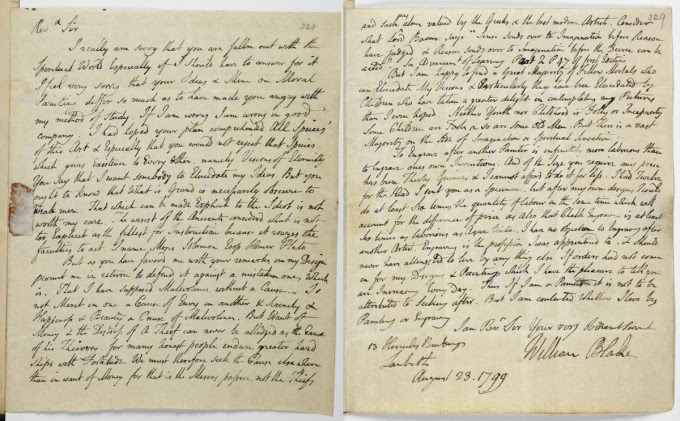 328
Revd Sir
I really am sorry that you are falln out with the
Spiritual World Especially if I should have to answer for it
I feel very sorry that your Ideas & Mine on Moral
Painting differ so much as to have made you angry with
my method of Study. If I am wrong I am wrong in good
company. I had hoped your plan comprehended All Species
of this Art & Especially that you would not reject that Species
which gives Existence to Every other. namely Visions of Eternity
You say that I want somebody to Elucidate my Ideas. But you
ought to know that What is Grand is necessarily obscure to
Weak men. That which can be made Explicit to the Idiot is not
worth my care. The wisest of the Ancients considerd what is not
too Explicit as the fittest for Instruction because it rouzes the
faculties to act. I name Moses Solomon Esop Homer Plato
But as you have favord me with your remarks on my Design
permit me in return to defend it against a mistaken one, which
is. That I have supposed Malevolence without a Cause.— Is
not Merit in one a Cause of Envy in another & Serenity &
Happiness & Beauty a Cause of Malevolence. But Want of
Money & the Distress of A Thief can never be alledged as the Cause
of his Thievery. for many honest people endure greater hard
ships with Fortitude We must therefore seek the Cause elsewhere
than in want of Money for that is the Misers passion, not the Thiefs
329
and such alone valued by the Greeks & the best modern Artists. Consider
what Lord Bacon says "Sense sends over to Imagination before Reason
have judged & Reason sends over to Imagination before the Decree can be
acted." See Advancemt of Learning Part 2 P 47 of first Edition
But I am happy to find a Great Majority of Fellow Mortals who
can Elucidate My Visions & Particularly they have been Elucidated by
Children who have taken a greater delight in contemplating my Pictures
than I even hoped. Neither Youth nor Childhood is Folly or Incapacity
Some Children are Fools & so are some Old Men. But There is a vast
Majority on the side of Imagination or Spiritual Sensation
To Engrave after another Painter is infinitely more laborious than
to Engrave ones own Inventions. And of the Size you require my price
has been Thirty Guineas & I cannot afford to do it for less. I had Twelve
for the Head I sent you as a Specimen, but after my own designs I could
do at least Six times the quantity of labour in the same time which will
account for the difference of price as also that Chalk Engraving is at least
six times as laborious as Aqua tinta. I have no objection to Engraving after
another Artist. Engraving is the profession I was apprenticed to, & should
never have attempted to live by any thing else If orders had not come
in for my Designs & Paintings, which I have the pleasure to tell you
are Increasing Every Day. Thus If I am a Painter it is not to be
attributed to Seeking after. But I am contented whether I live by
Painting or Engraving
I am Revd Sir Your very obedient Servant
William Blake
13 Hercules Buildings
Lambeth
August 23. 1799